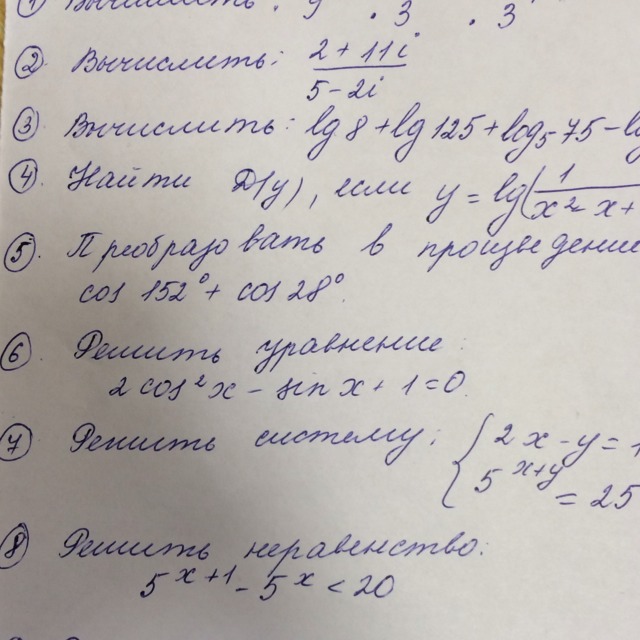 ① Вычислить: 9 · 3 · 3
② Вычислить: \frac{2 + 11i}{5 - 2i}
③ Вычислить: lg 8 + lg 125 + log₅ 75 - lo
④ Найти D(y), если y = lg(\frac{1}{x² - x +
⑤. Преобразовать в произведение
cos 152° + cos 28°.
⑥ Решить уравнение:
2 cos² x - sin x + 1 = 0.
⑦ Решить систему: { 2x - y = 1
5^{x+y} = 25
⑧ Решить неравенство:
5^{x+1} - 5^x < 20